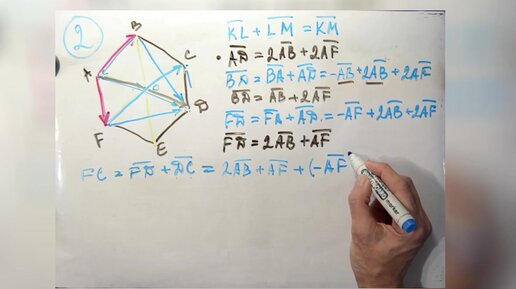 2
KL + LM = KM
• AD = 2AB + 2AF
BD = BA + AD = -AB + 2AB + 2AF
BD = AB + 2AF
FD = FA + AD = -AF + 2AB + 2AF
FD = 2AB + AF
FC = FD + DC = 2AB + AF + (-AF
B
C
A
O
D
F
E
marker